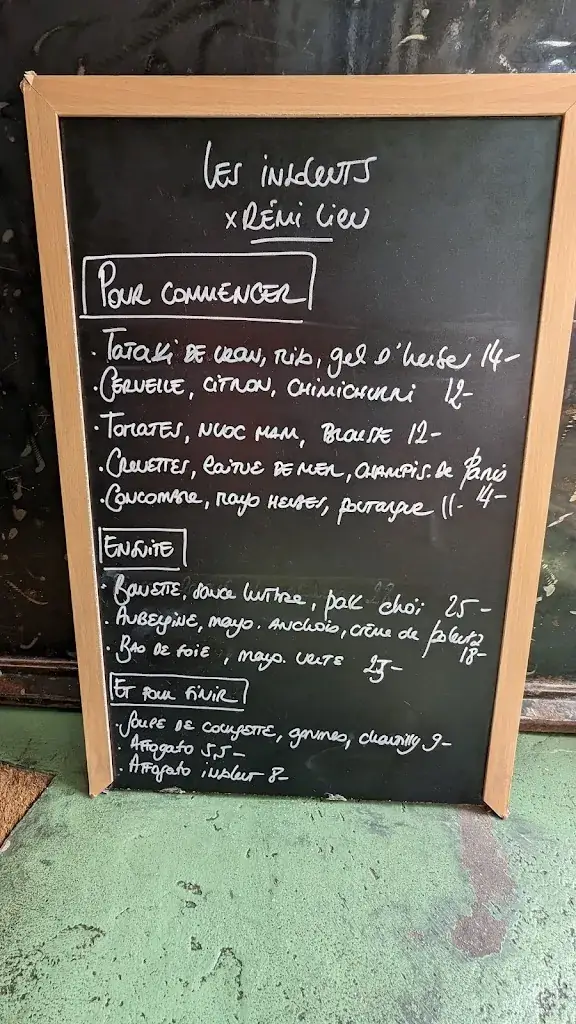 LES INSOLENTS
x RÉMI LIEU
POUR COMMENCER
· TATAKI DE VEAU, , gel d'herbe 14-
· CERVELLE, CITRON, CHIMICHURRI 12-
· TOMATES, NUOC MAM, BROUSSE 12-
· CREVETTES, LAITUE DE MER, CHAMPIS. de Paris
14-
· CONCOMBRE, mayo HERBES, poutargue 11-
ENSUITE
· BAVETTE, sauce , pak choï 25-
· AUBERGINE, mayo. ANCHOIS, crème de polenta
18-
· BAO DE FOIE, mayo. VERTE
ET POUR FINIR
· SOUPE DE COURGETTE, , chantilly 9-
· AFFOGATO 5,5-
· AFFOGATO insolent 8-